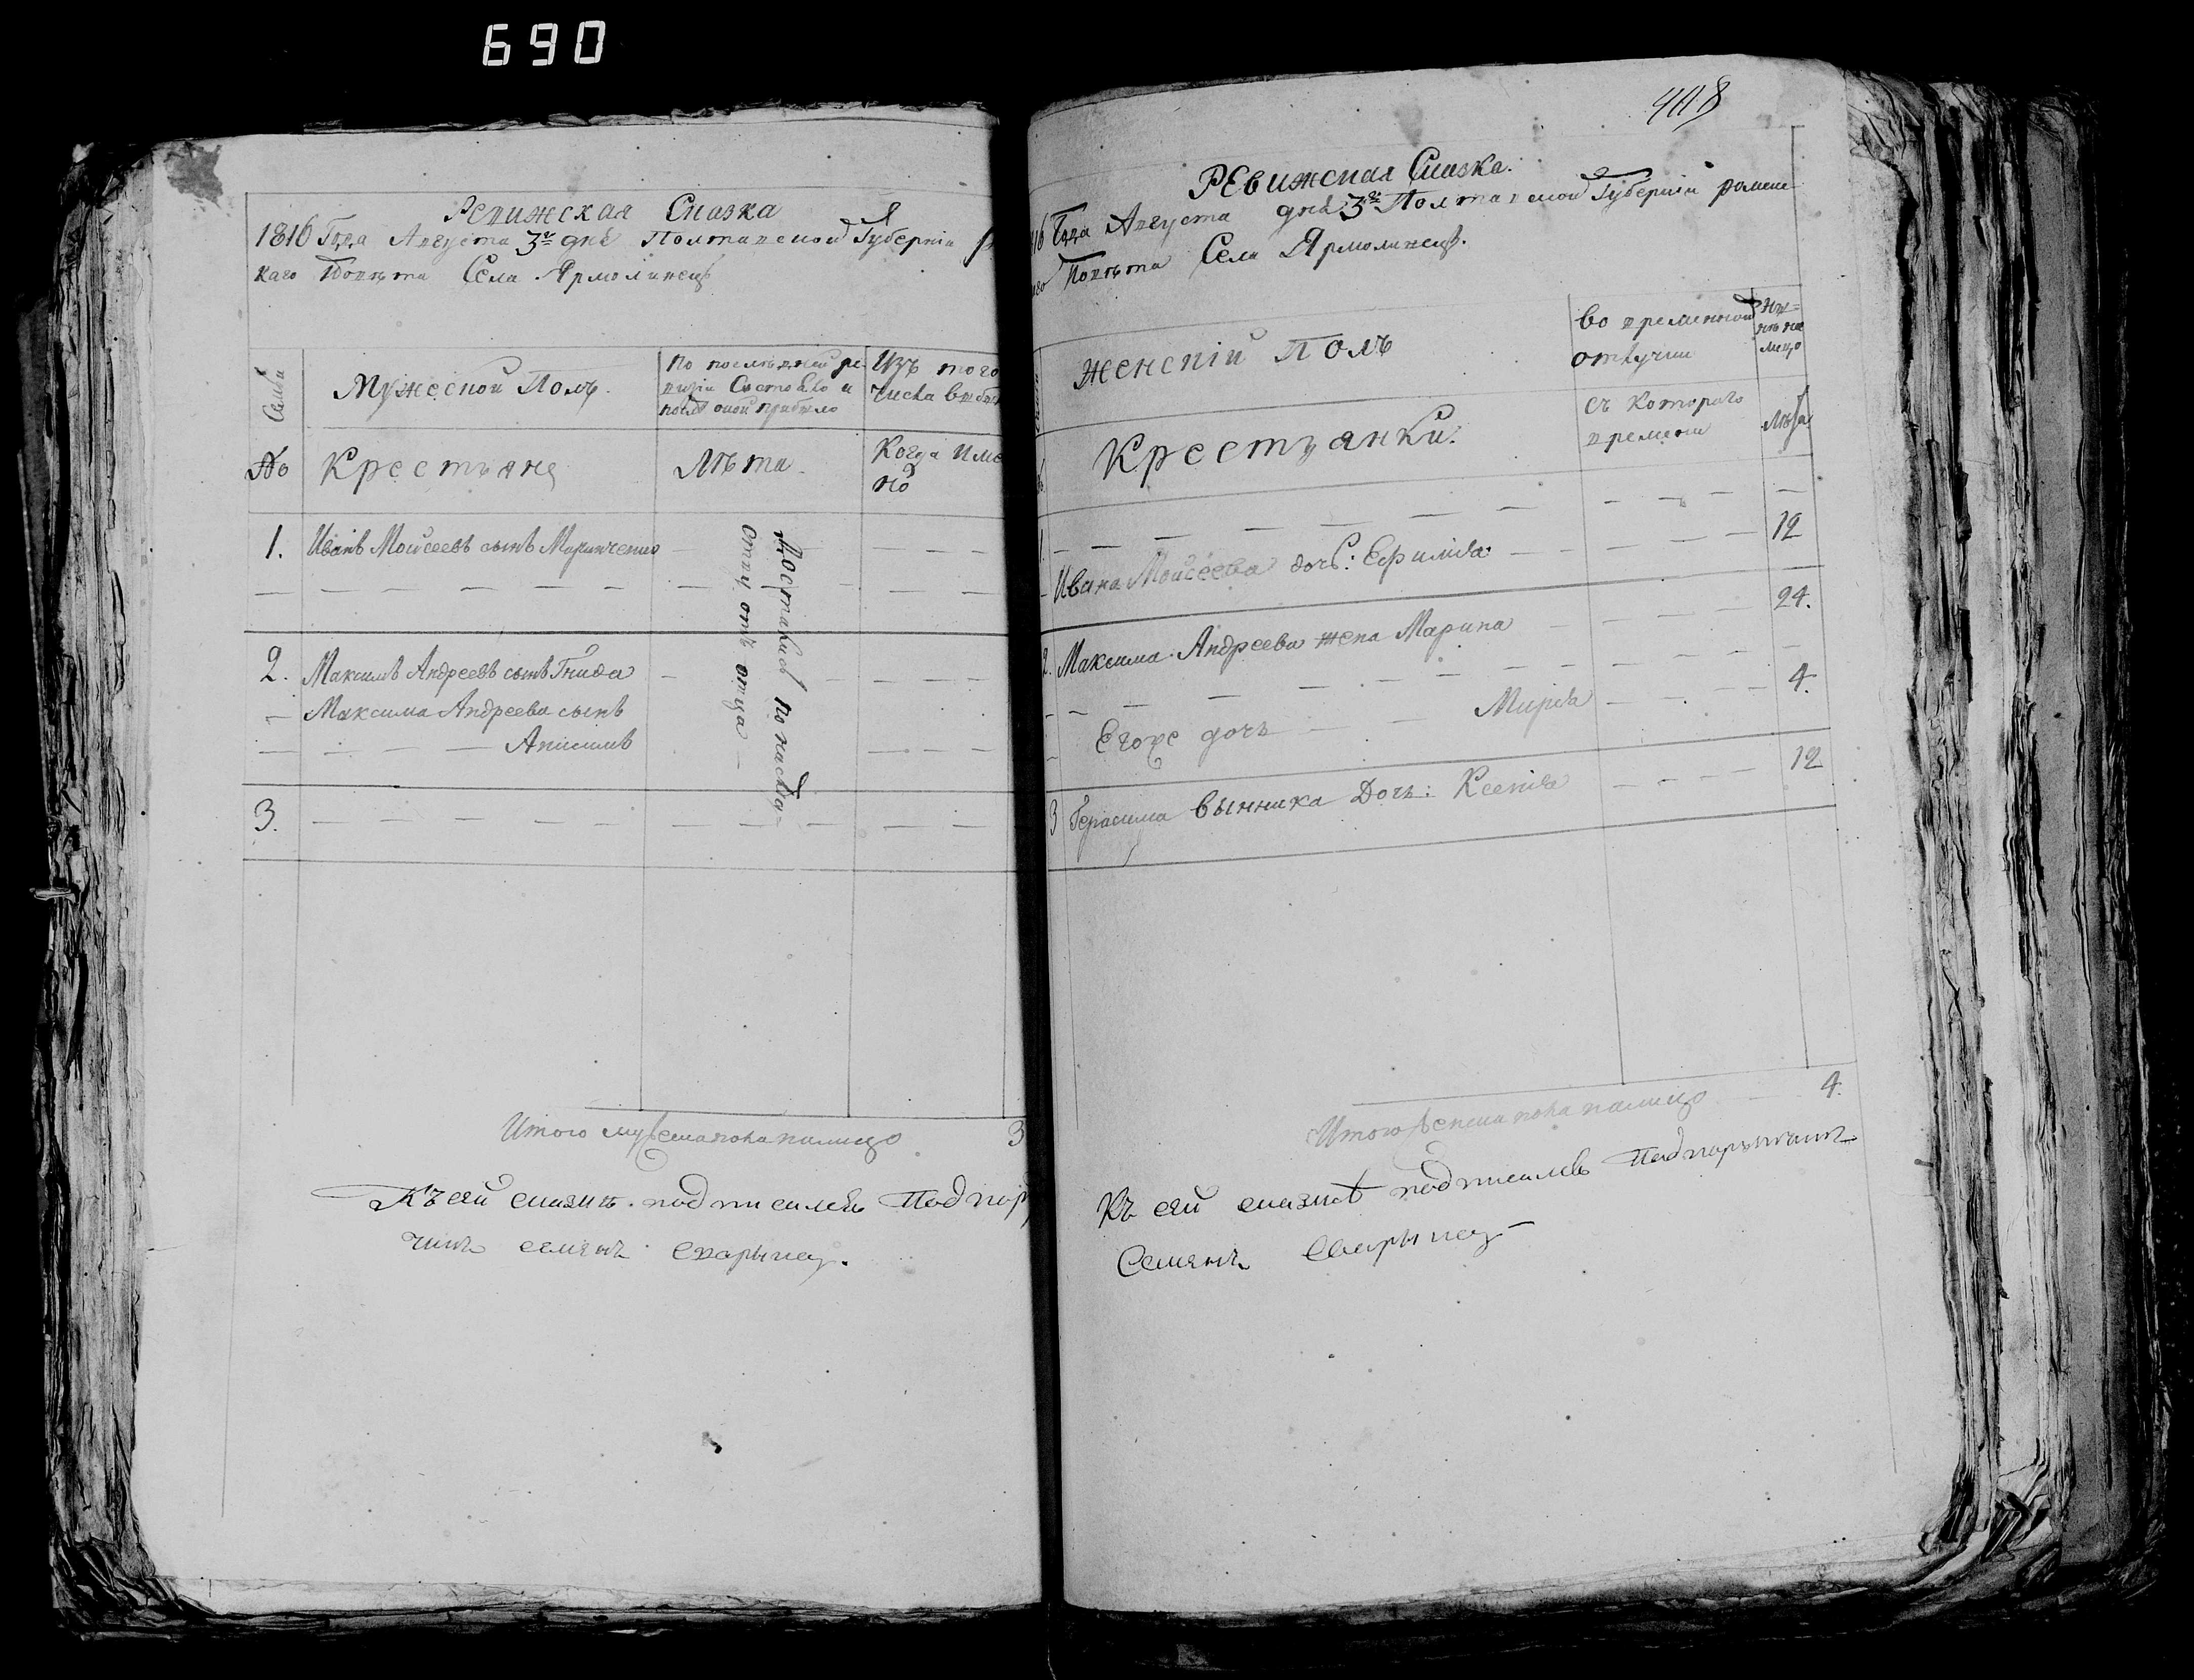 690
Ревижская Сказка
1816 Года Августа 3го дня Полтавской Губернии
каго Повѣта Села Ярмолинец
Семьи
Мужеской Полъ.
По послѣдней ре-
визіи Состояло и
послѣ оной прибыло
Изъ того
числа выбы
№
Крестьяне
Лѣта.
Когда име
но
1. Иванъ Моисеевъ сынъ Маринченко
2. Максимъ Андреевъ сынъ Гнида
Максима Андреева сынъ
Анисимъ
3.
Достались по наслѣд-
отцу отъ отца
Итого мужеска пола налицо 3
Къ сей сказкѣ подписался Подпору
чикъ Семенъ Скарынец.
408
Ревижская Сказка.
16 Года Августа дня 3го Полтавской Губернии ромене
Повѣта Села Ярмолинец.
женскій Полъ
во временной
отлучки
ны=
нѣ на
лицо
Крестьянки.
съ котораго
времени
Лѣта
Ивана Моисеева дочь: Ефимія 12
2. Максима Андреева жена Марина 24.
Егоже дочь Марія 4.
3 Герасима Вынника Дочь: Ксенія 12
Итого женска пола налицо 4.
Къ сей сказкѣ подписался Подпорутчикъ
Семенъ Скарынец